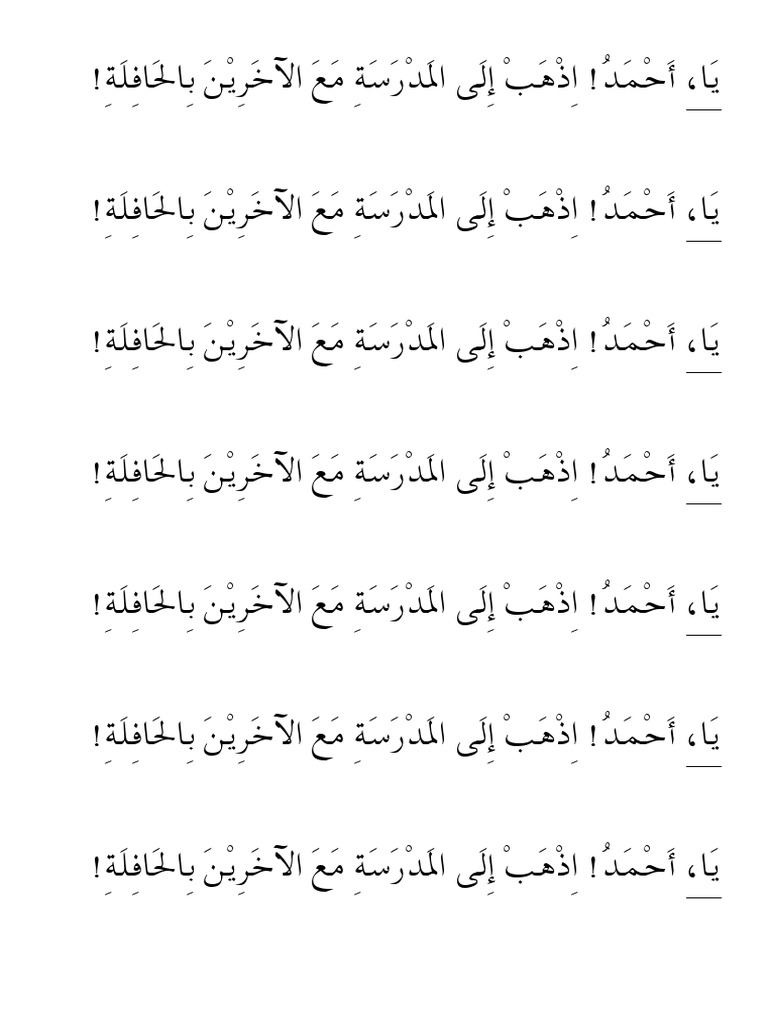 يَا، أَحْمَدُ! اِذْهَبْ إِلَى المَدْرَسَةِ مَعَ الآخَرِيْنَ بِالحَافِلَةِ!
يَا، أَحْمَدُ! اِذْهَبْ إِلَى المَدْرَسَةِ مَعَ الآخَرِيْنَ بِالحَافِلَةِ!
يَا، أَحْمَدُ! اِذْهَبْ إِلَى المَدْرَسَةِ مَعَ الآخَرِيْنَ بِالحَافِلَةِ!
يَا، أَحْمَدُ! اِذْهَبْ إِلَى المَدْرَسَةِ مَعَ الآخَرِيْنَ بِالحَافِلَةِ!
يَا، أَحْمَدُ! اِذْهَبْ إِلَى المَدْرَسَةِ مَعَ الآخَرِيْنَ بِالحَافِلَةِ!
يَا، أَحْمَدُ! اِذْهَبْ إِلَى المَدْرَسَةِ مَعَ الآخَرِيْنَ بِالحَافِلَةِ!
يَا، أَحْمَدُ! اِذْهَبْ إِلَى المَدْرَسَةِ مَعَ الآخَرِيْنَ بِالحَافِلَةِ!